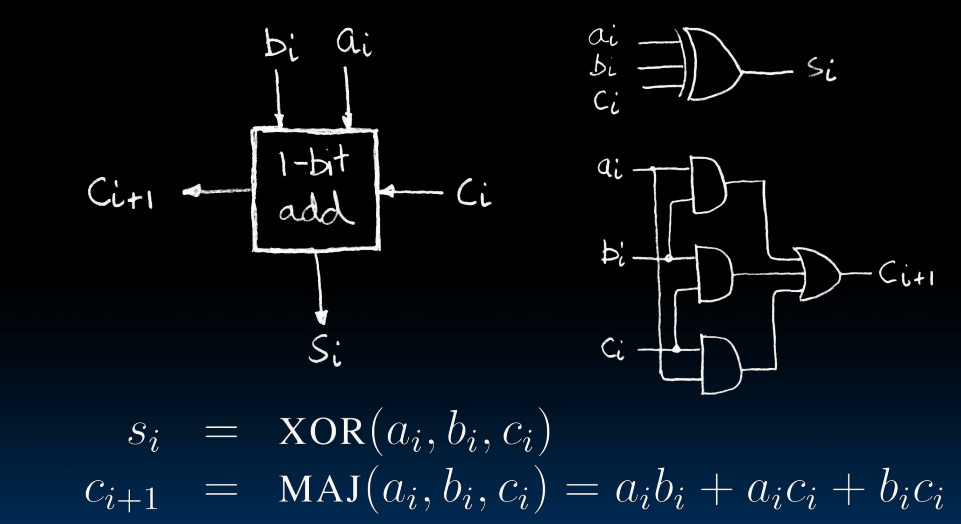 bᵢ aᵢ
1-bit
add
cᵢ₊₁
cᵢ
sᵢ
aᵢ
bᵢ
cᵢ
sᵢ
aᵢ
bᵢ
cᵢ
cᵢ₊₁
sᵢ = XOR(aᵢ, bᵢ, cᵢ)
cᵢ₊₁ = MAJ(aᵢ, bᵢ, cᵢ) = aᵢbᵢ + aᵢcᵢ + bᵢcᵢ